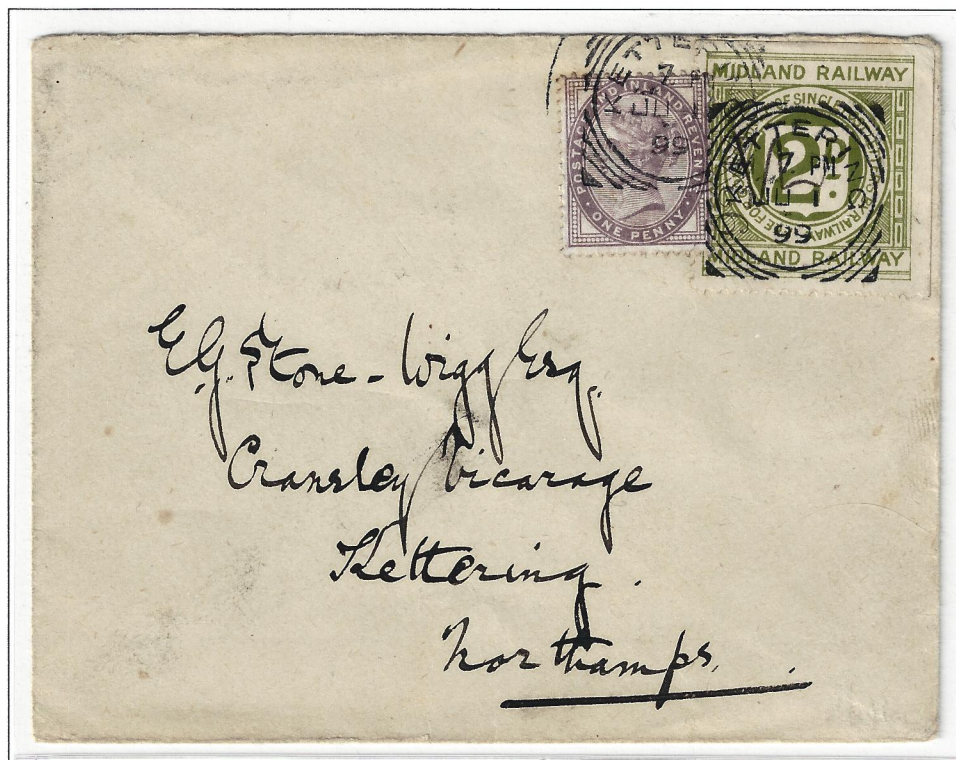 KETTERING
7
JU 1
99
POSTAGE AND INLAND REVENUE
ONE PENNY
MIDLAND RAILWAY
KETTERING
7 PM
JU 1
99
2D
MIDLAND RAILWAY
E.G. Stone-Wigg Esq.
Cransley Vicarage
Kettering.
Northamps.